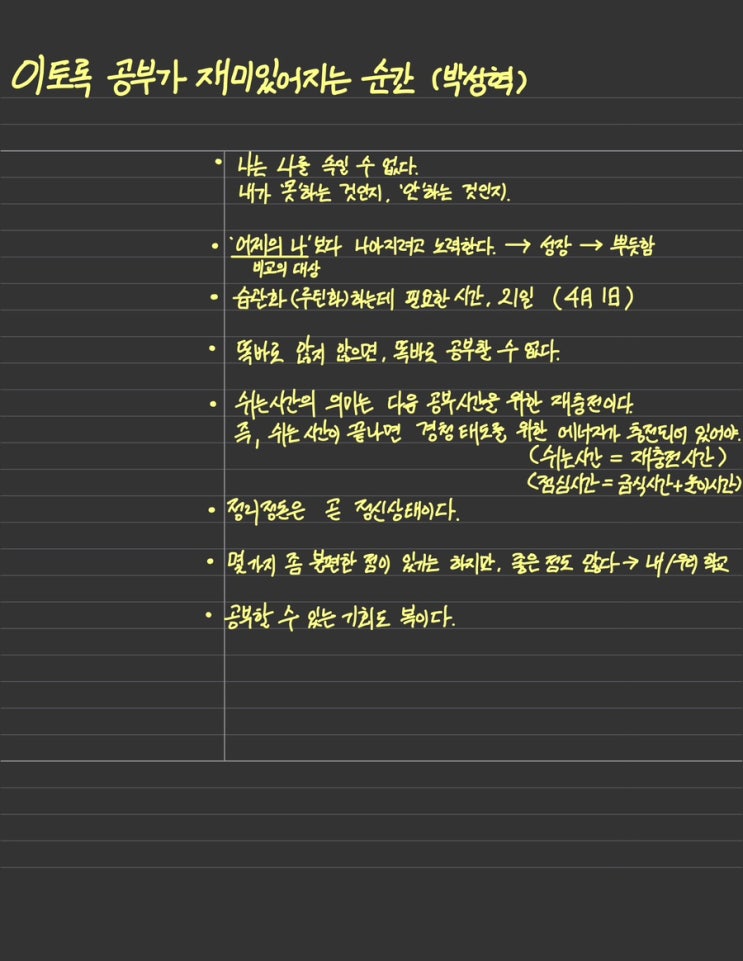 이토록 공부가 재미있어지는 순간 (박성혁)
• 나는 나를 속일 수 없다.
내가 '못'하는 것인지, '안'하는 것인지.
• '어제의 나'보다 나아지려고 노력한다. → 성장 → 뿌듯함
비교의 대상
• 습관화(루틴화)하는데 필요한 시간, 21일 (4月 1日)
• 똑바로 앉지 않으면, 똑바로 공부할 수 없다.
• 쉬는시간의 의미는 다음 공부시간을 위한 재충전이다.
즉, 쉬는 시간이 끝나면 경청 태도를 위한 에너지가 충전되어 있어야.
(쉬는시간 = 재충전시간)
(점심시간 = 급식시간+놀이시간)
• 정리정돈은 곧 정신상태이다.
• 몇가지 좀 불편한 점이 있기는 하지만, 좋은 점도 많다 → 내/우리 학교
• 공부할 수 있는 기회도 복이다.